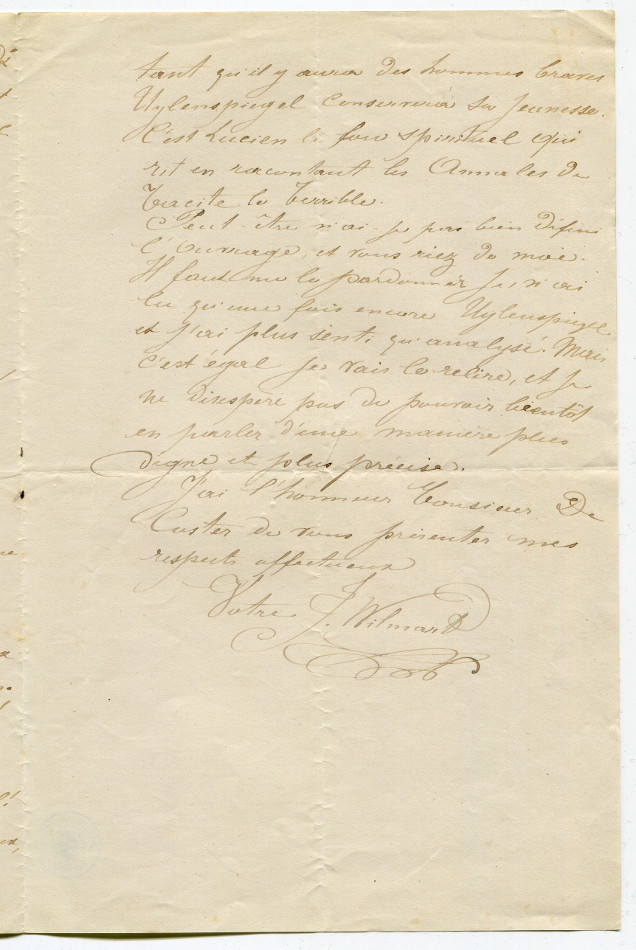 tant qu'il y aura des hommes braves
Uylenspiegel conservera sa jeunesse.
C'est Lucien le fou spirituel qui
rit en racontant les Annales de
Tacite le Terrible.
Peut-être n'ai-je pas bien défini
l'Ouvrage, et vous riez de moi.
Il faut me le pardonner je n'ai
lu qu'une fois encore Uylenspiegel
et j'ai plus senti qu'analysé. Mais
c'est égal je vais le relire, et je
ne désespère pas de pouvoir bientôt
en parler d'une manière plus
digne et plus précise.
J'ai l'honneur Monsieur De
Coster de vous présenter mes
respects affectueux
Votre J. Wilmart